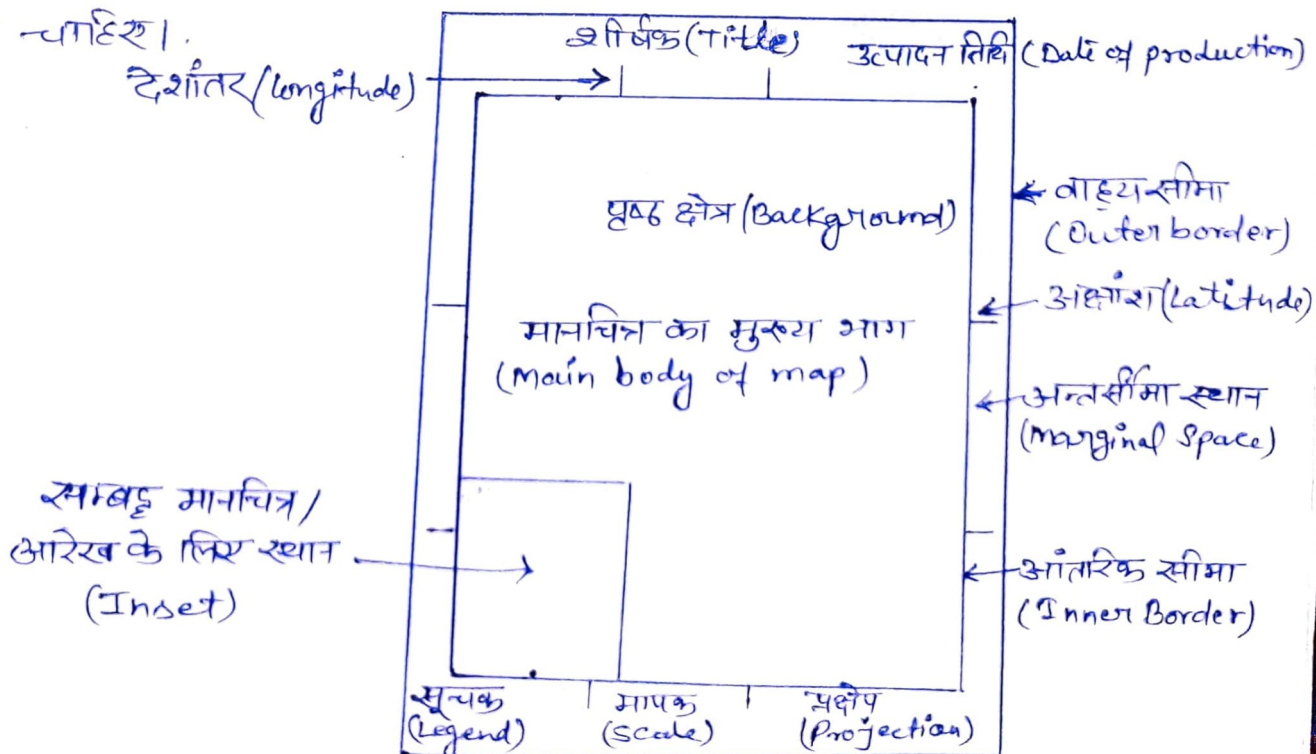 चाहिए।
शीर्षक (Title)
उत्पादन तिथि (Date of production)
देशांतर (Longitude)
पृष्ठ क्षेत्र (Background)
वाह्य सीमा
(Outer border)
अक्षांश (Latitude)
मानचित्र का मुख्य भाग
(Main body of map)
अन्तर्सीमा स्थान
(Marginal Space)
सम्बद्ध मानचित्र/
आरेख के लिए स्थान
(Inset)
आंतरिक सीमा
(Inner Border)
सूचक
(Legend)
मापक
(Scale)
प्रक्षेप
(Projection)